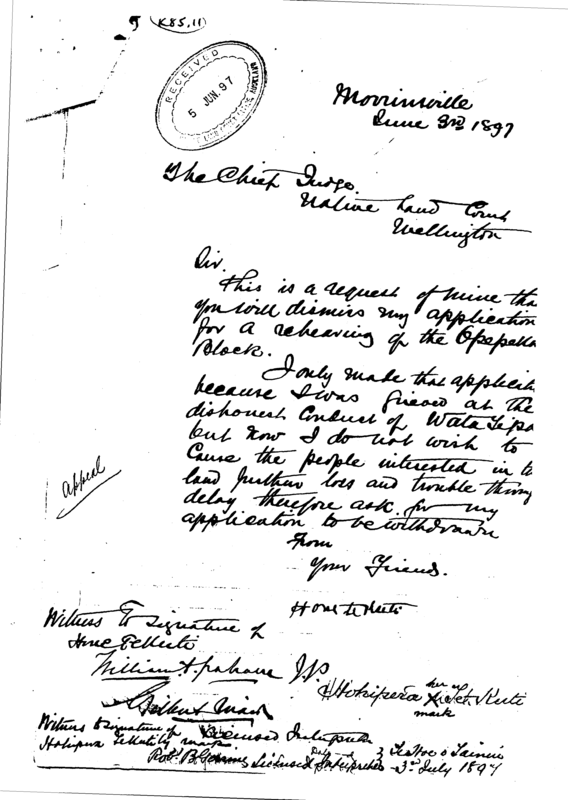 K85.11
RECEIVED
5 JUN. 97
Morrinsville
June 3rd 1897
The Chief Judge
Native Land Court
Wellington
Sir.
This is a request of mine tha
you will dismiss my application
for a rehearing of the
Block.
I only made that applicat
because I was grieved at the
dishonest conduct of Wata Tipa
but now I do not wish to
cause the people interested in
land further loss and trouble
delay therefore ask for my
application to be withdrawn
From
Your Friend.
Hone te
appeal
Witness to signature of
Hone Te
William A. Grahame J.P.
her
Hokipera x Te
mark
Gilbert Mair
Licensed Interpreter
Witness to signature of
Hokipera mark.
Licensed Interpreter 3rd July 1897